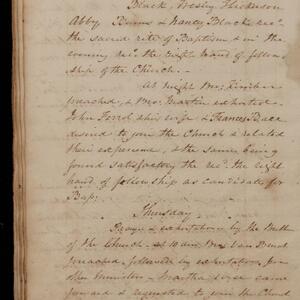 Black, Wesley Hickerson
Abby Burns & Nancy Black recd
the sacred rite of Baptism & in the
evening recd the right hand of fellow
ship of the Church.
At night Mr.
preached, & Mr. Martin exhorted
John Ferrel & his wife & Frances Bace
desired to join the Church & related
their experience, & the same being
found satisfactory the recd the right
hand of fellowship as candidate for
Bap;
Thursday
Prayer & exhortation by the Breth
of the Church at 10 a.m. Mr Van Brunt
preached followed by exhortation from
other Ministers Martha came
forward & requested to join the Church